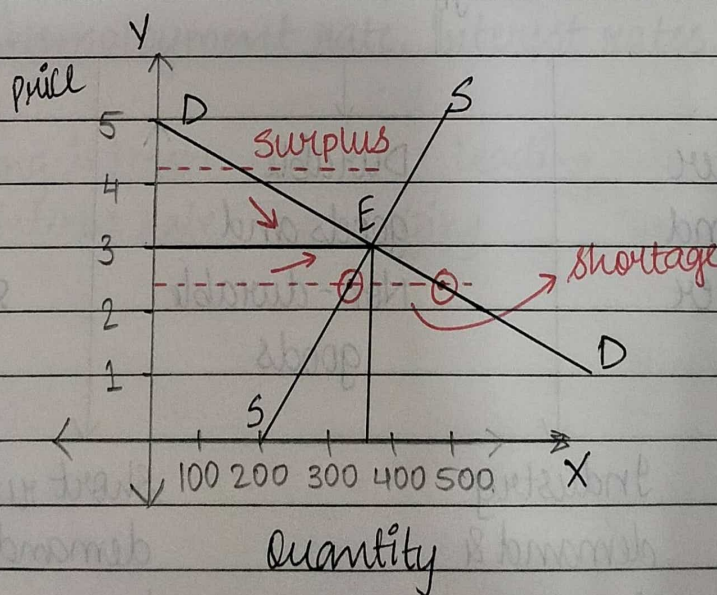 Y
Price
S
5
D
surplus
4
E
3
shortage
2
D
1
S
100 200 300 400 500
X
Quantity